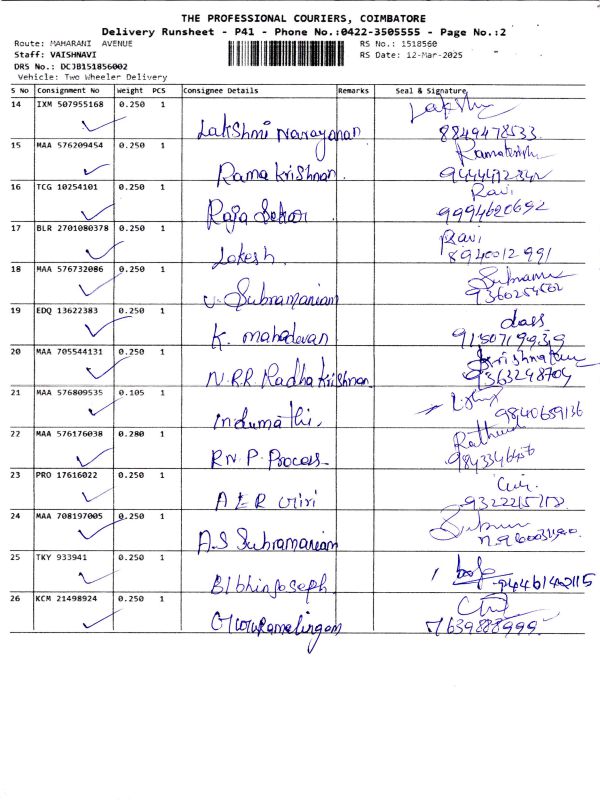 THE PROFESSIONAL COURIERS, COIMBATORE
Delivery Runsheet - P41 - Phone No.:0422-3505555 - Page No.:2
Route: MAHARANI AVENUE RS No.: 1518560
Staff: VAISHNAVI RS Date: 12-Mar-2025
DRS No.: DCJB151856002
Vehicle: Two Wheeler Delivery
S No Consignment No Weight PCS Consignee Details Remarks Seal & Signature
14 IXM 507955168 0.250 1
Lakshmi Narayanan 8849478533
15 MAA 576209454 0.250 1
Rama Krishnan.
16 TCG 10254101 0.250 1 Ravi
Raja Sekar 9994620692
17 BLR 2701080378 0.250 1 Ravi
Lokesh. 8940012991
18 MAA 576732086 0.250 1
V. Subramaniam 9360254502
19 EDQ 13622383 0.250 1 dass
K. mahadevan 9150719939
20 MAA 705544131 0.250 1
N.R.R Radha Krishnan 9363248704
21 MAA 576809535 0.105 1
Indumathi. 9840659136
22 MAA 576176038 0.280 1
R.N.P. Process
23 PRO 17616022 0.250 1
A E R Giri
24 MAA 708197005 0.250 1
A.S Subramaniam
25 TKY 933941 0.250 1
9446142115
26 KCM 21498924 0.250 1
Gururamalingam 7639888999